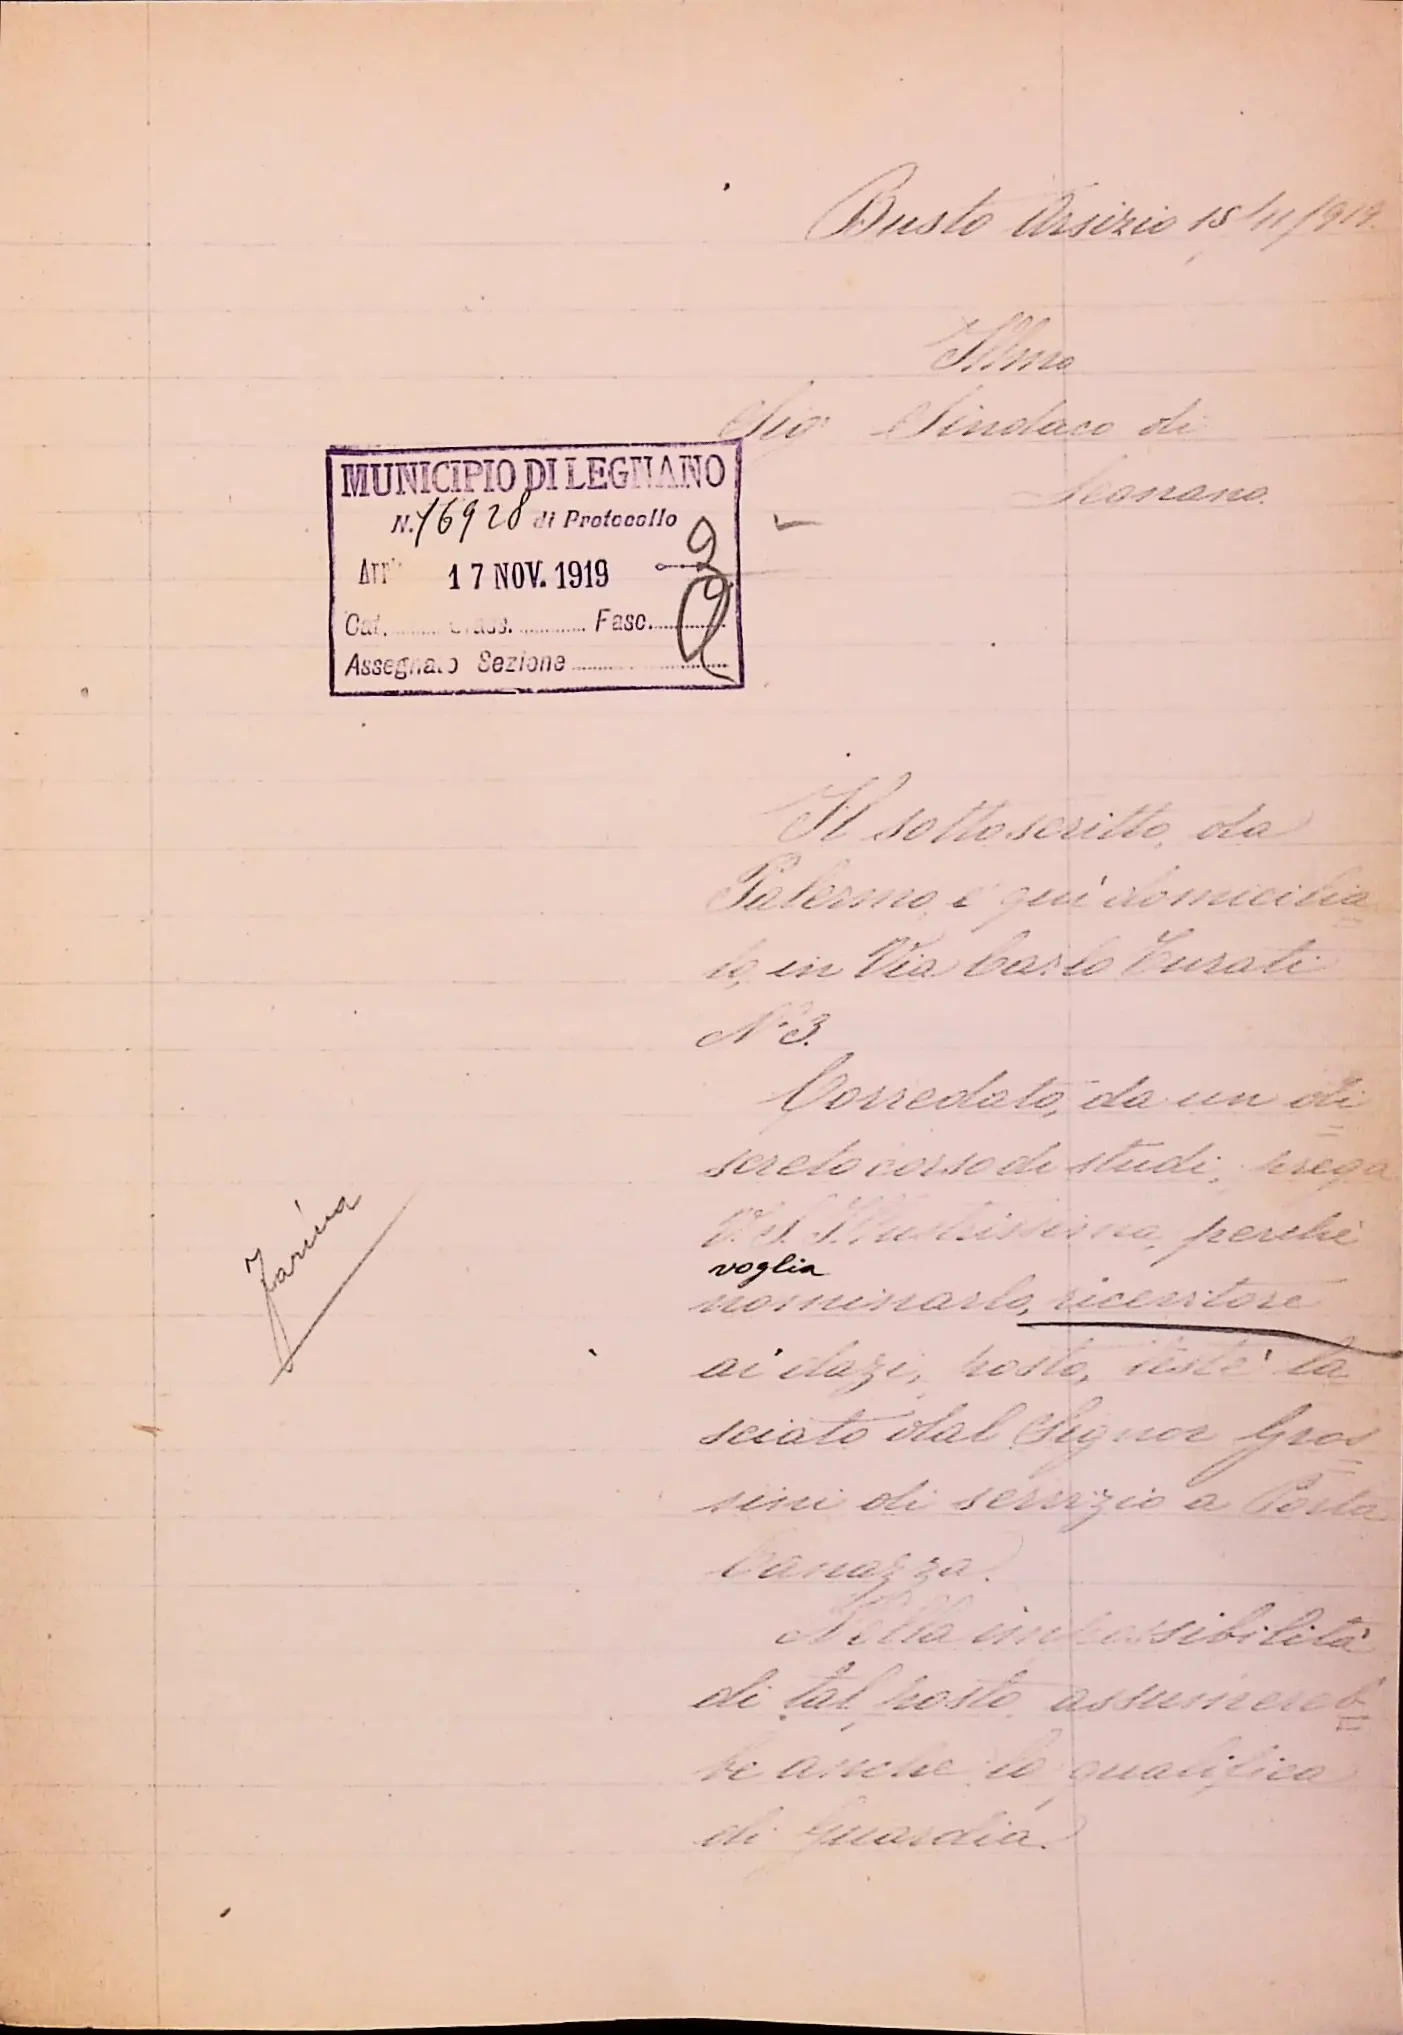 Busto Arsizio 15/11/919.
Illmo
Sig. Sindaco di
Legnano.
MUNICIPIO DI LEGNANO
N. 16928 di Protocollo
Arr. 17 NOV. 1919
Cat. Class. Fasc.
Assegnato Sezione
Il sottoscritto, da
Palermo, e quì domicilia
to, in Via Carlo Turati
N° 3.
Corredato, da un di
screto corso di studi, prega
V. S. Illustrissima, perchè
voglia
nominarlo, ricevitore
ai dazi, posto, testè la
sciato dal Signor Gros
sini di servizio a Porta
Canazza.
Nella impossibilità
di tal posto assumereb
be anche la qualifica
di Guardia.
Farina